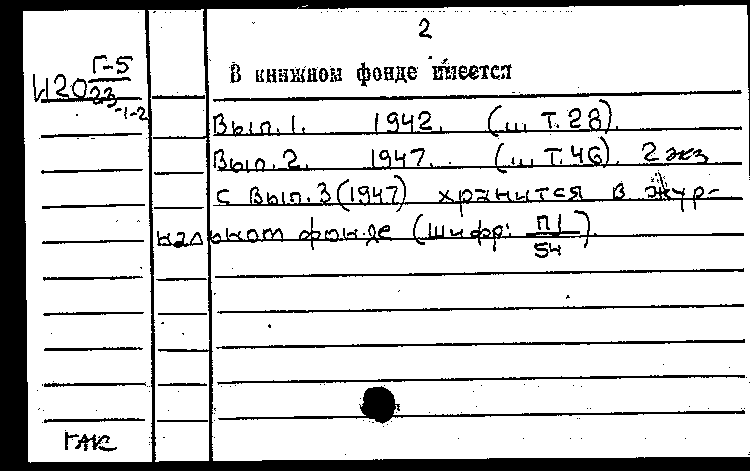 2
Г-5
И20 23-1-2
В книжном фонде имеется
Вып. 1. 1942. (ш. Т. 28).
Вып. 2. 1947. (ш. Т. 46). 2 экз
с Вып. 3 (1947) хранится в жур-
нальном фонде (шифр: П1/54).
ГАК